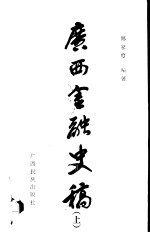 廣西金融史稿
(上)
郑家度 编著
广西民族出版社